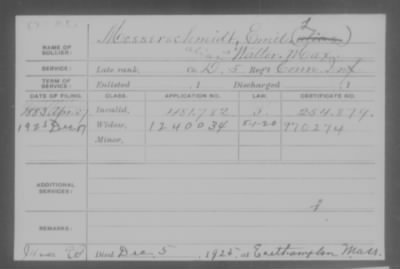 Messerschmidt, Emil (Alias)
NAME OF SOLDIER:
alias Walter, Max
SERVICE: Late rank, Co D, 5 Reg't Conn. Inf.
TERM OF SERVICE: Enlisted , 1 Discharged , 1
DATE OF FILING. CLASS. APPLICATION NO. LAW. CERTIFICATE NO.
1883 Apr. Invalid, 481,782 254,879.
1925 Dec Widow, 1240034 5-1-20 970274
Minor,
ADDITIONAL SERVICES:
REMARKS:
Died Dec. 5 , 1925, at Easthampton Mass.